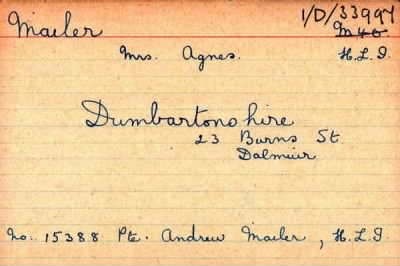 Mailer 1/D/33997
M 40
Mrs. Agnes. H.L.I.
Dumbartonshire
23 Burns St
Dalmuir
No. 15388 Pte. Andrew Mailer, H.L.I.